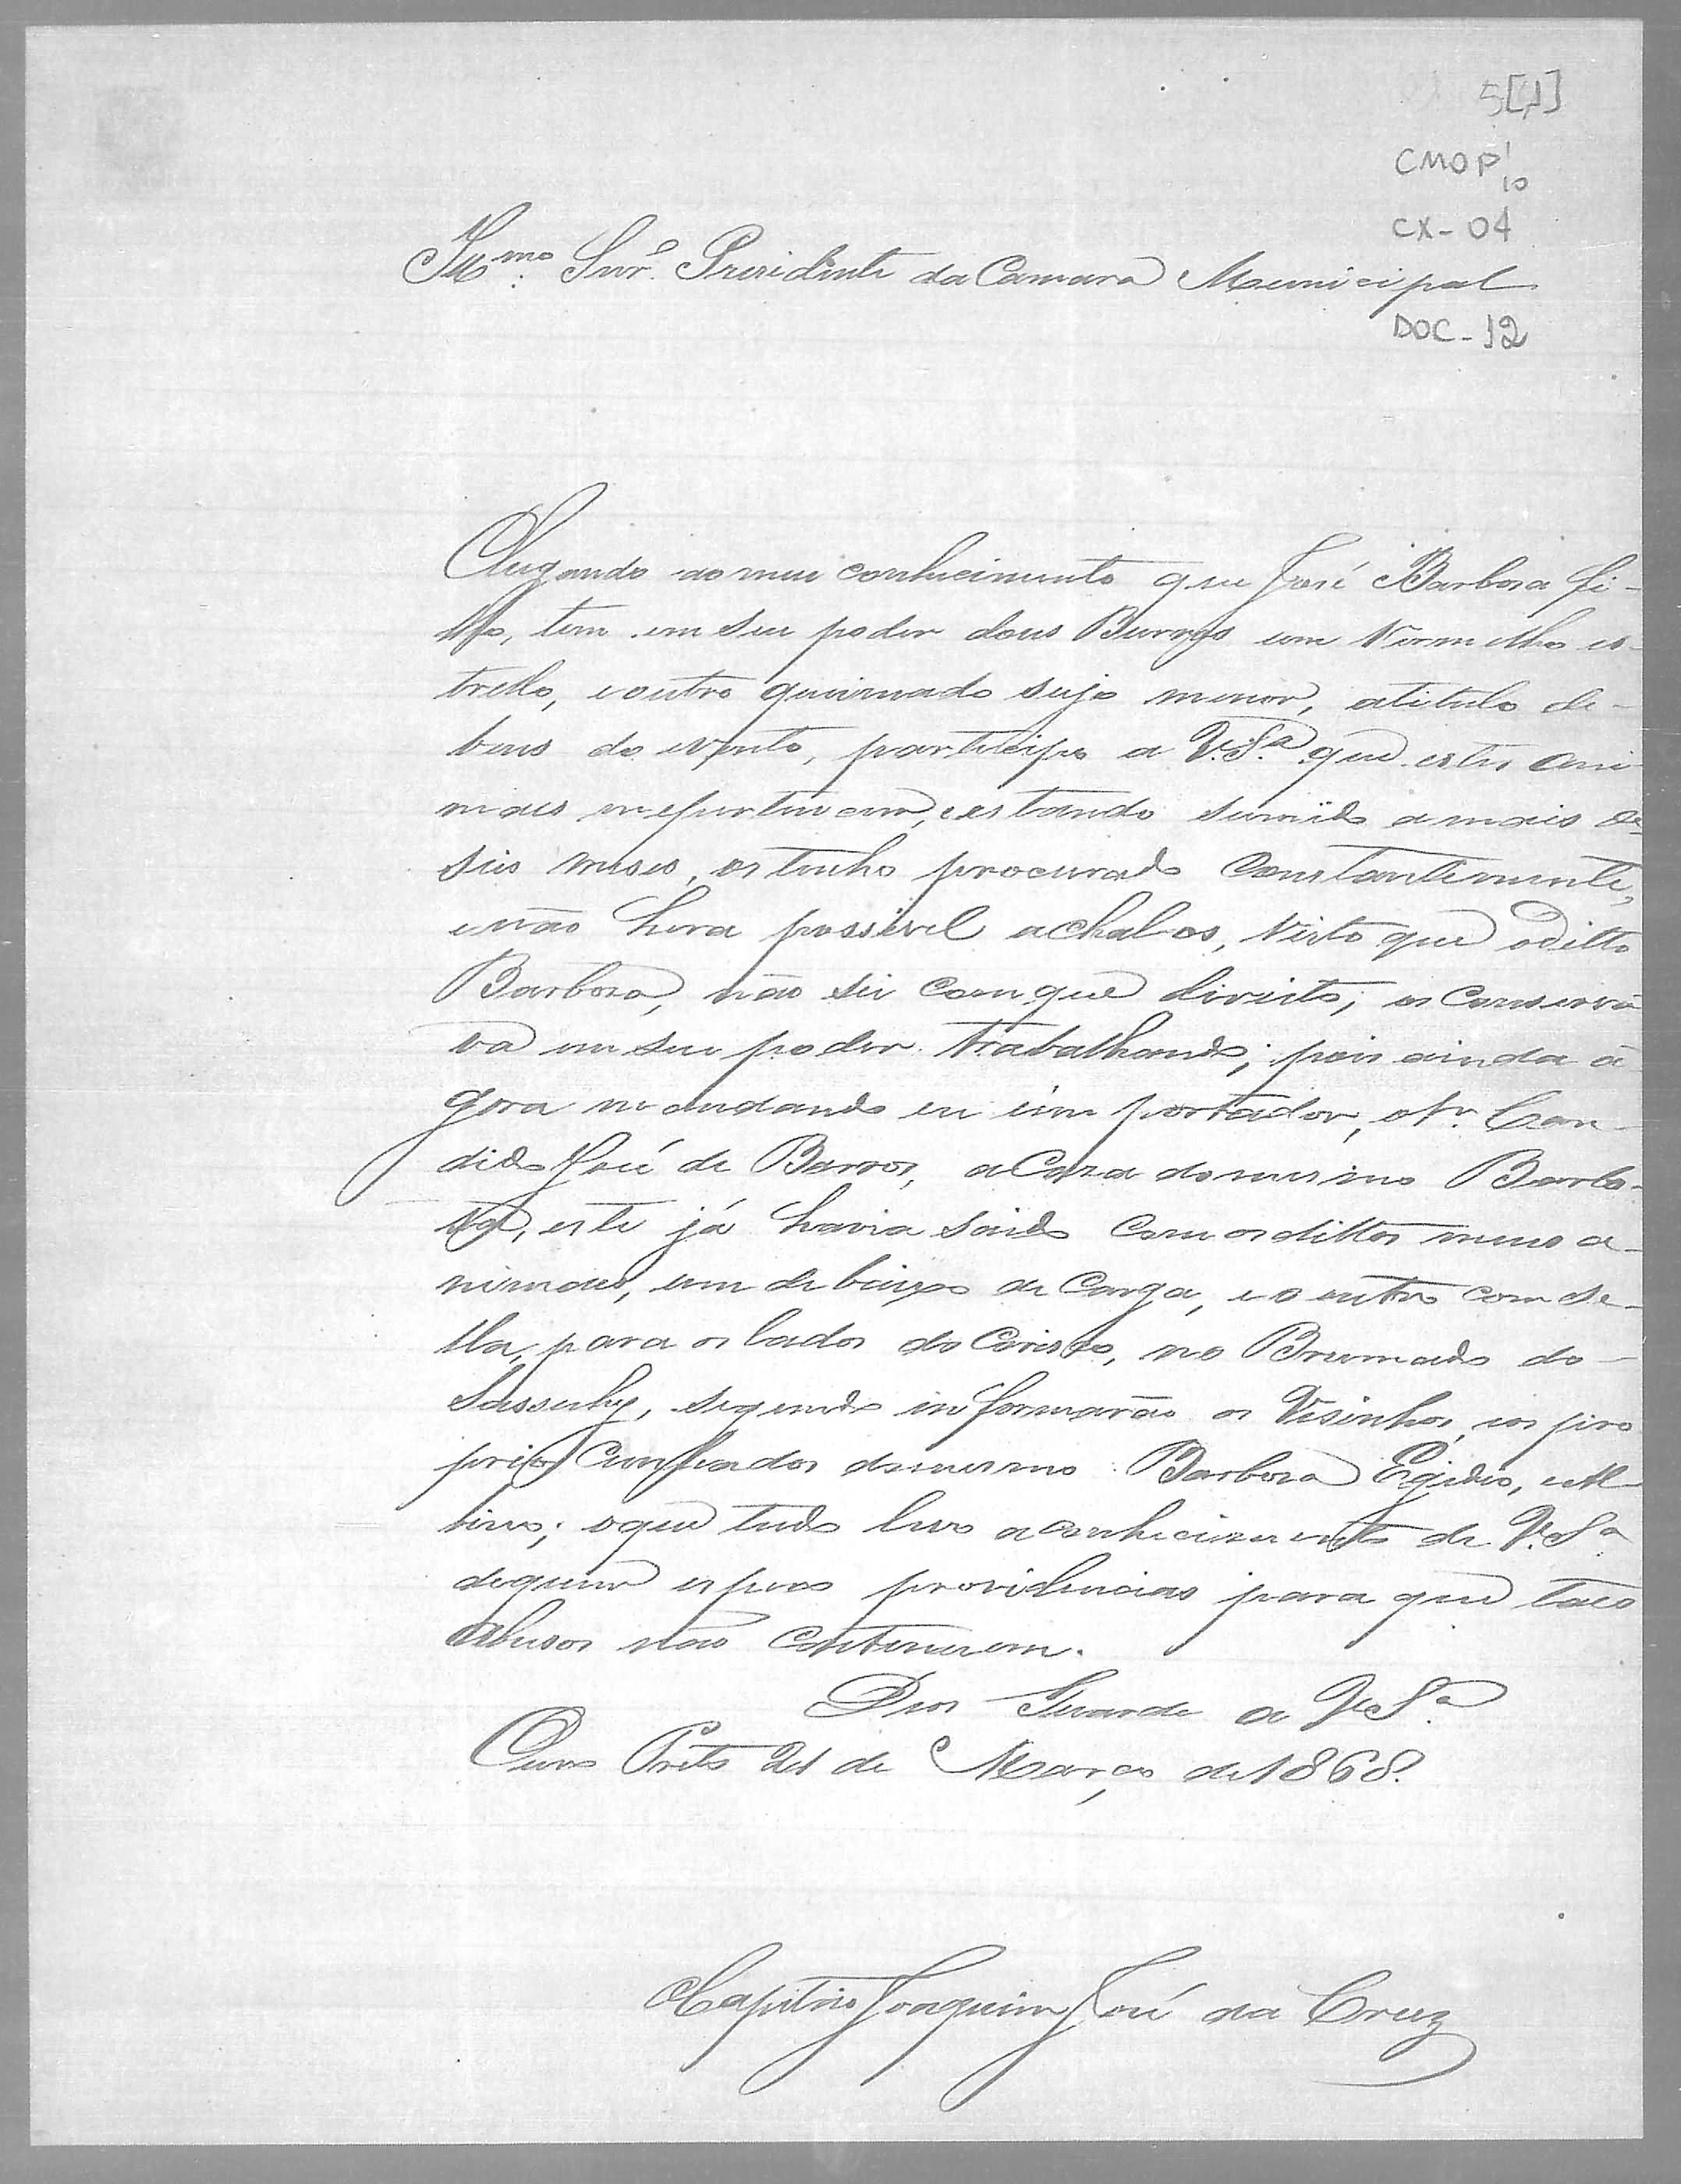 5[1]
CMOP 1
10
CX-04
Illmo. Snr. Prezidente da Camara Municipal
DOC-12
Chegando ao meu conhecimento que José Barbosa fi-
lho, tem em seu poder dous Burros um Vermelho es-
trello, e outro queimado sujo menor, atitulo de
bens do evento, participo a V.Sª. que estes ani
maes me pertencem, e estando sumido a mais de
seis meses, os tenho procurado Constantemente,
e não hera possivel achal-os, Visto que o ditto
Barbosa, não sei com que direito, os Conserva
va em seu poder trabalhando; pois ainda a
gora mandando eu um portador, o Sr. Can-
dido José de Barros, a Caza do mesmo Barbo-
za, este já havia saido Com os dittos meus a-
nimaes, um debaixo de Carga, e o outro com se-
lla, para os lados do no Brumado do
Sassuhy, segundo informarão os Visinhos, e os pro
prios Cunhados do mesmo Barbosa Egidio, e Al
bino; o que tudo levo a conhecimento de V.Sª.
de quem espero providencias para que taes
abusos não continuem.
Deos Guarde a V.Sª.
Ouro Preto 21 de Março de 1868.
Capitão Joaquim José da Cruz